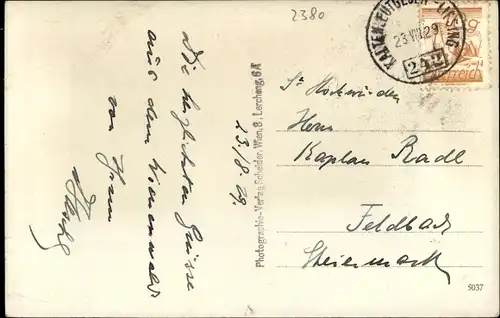 2380
KALTENLEUTGEBEN-LIESING
23.VIII.29
242
Die herzlichsten Grüsse
aus dem Wienerwald
von Ihrem
23/8. 29.
Photographie-Verlag Schneider, Wien, 8., Lercheng. 6A
Sr Hochwürden
Herrn
Kaplan Radl
Feldbach
Steiermark
5037